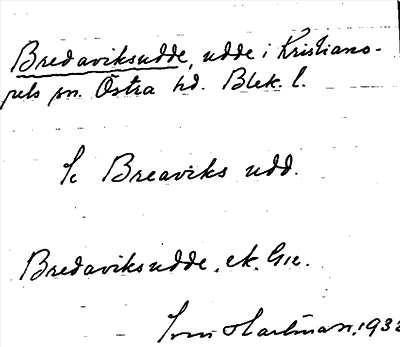 Bredaviksudde, udde i Kristiano-
pels sn. Östra hd. Blek. l.
Se Breaviks udd.
Bredaviksudde, ek.
Hartman, 193